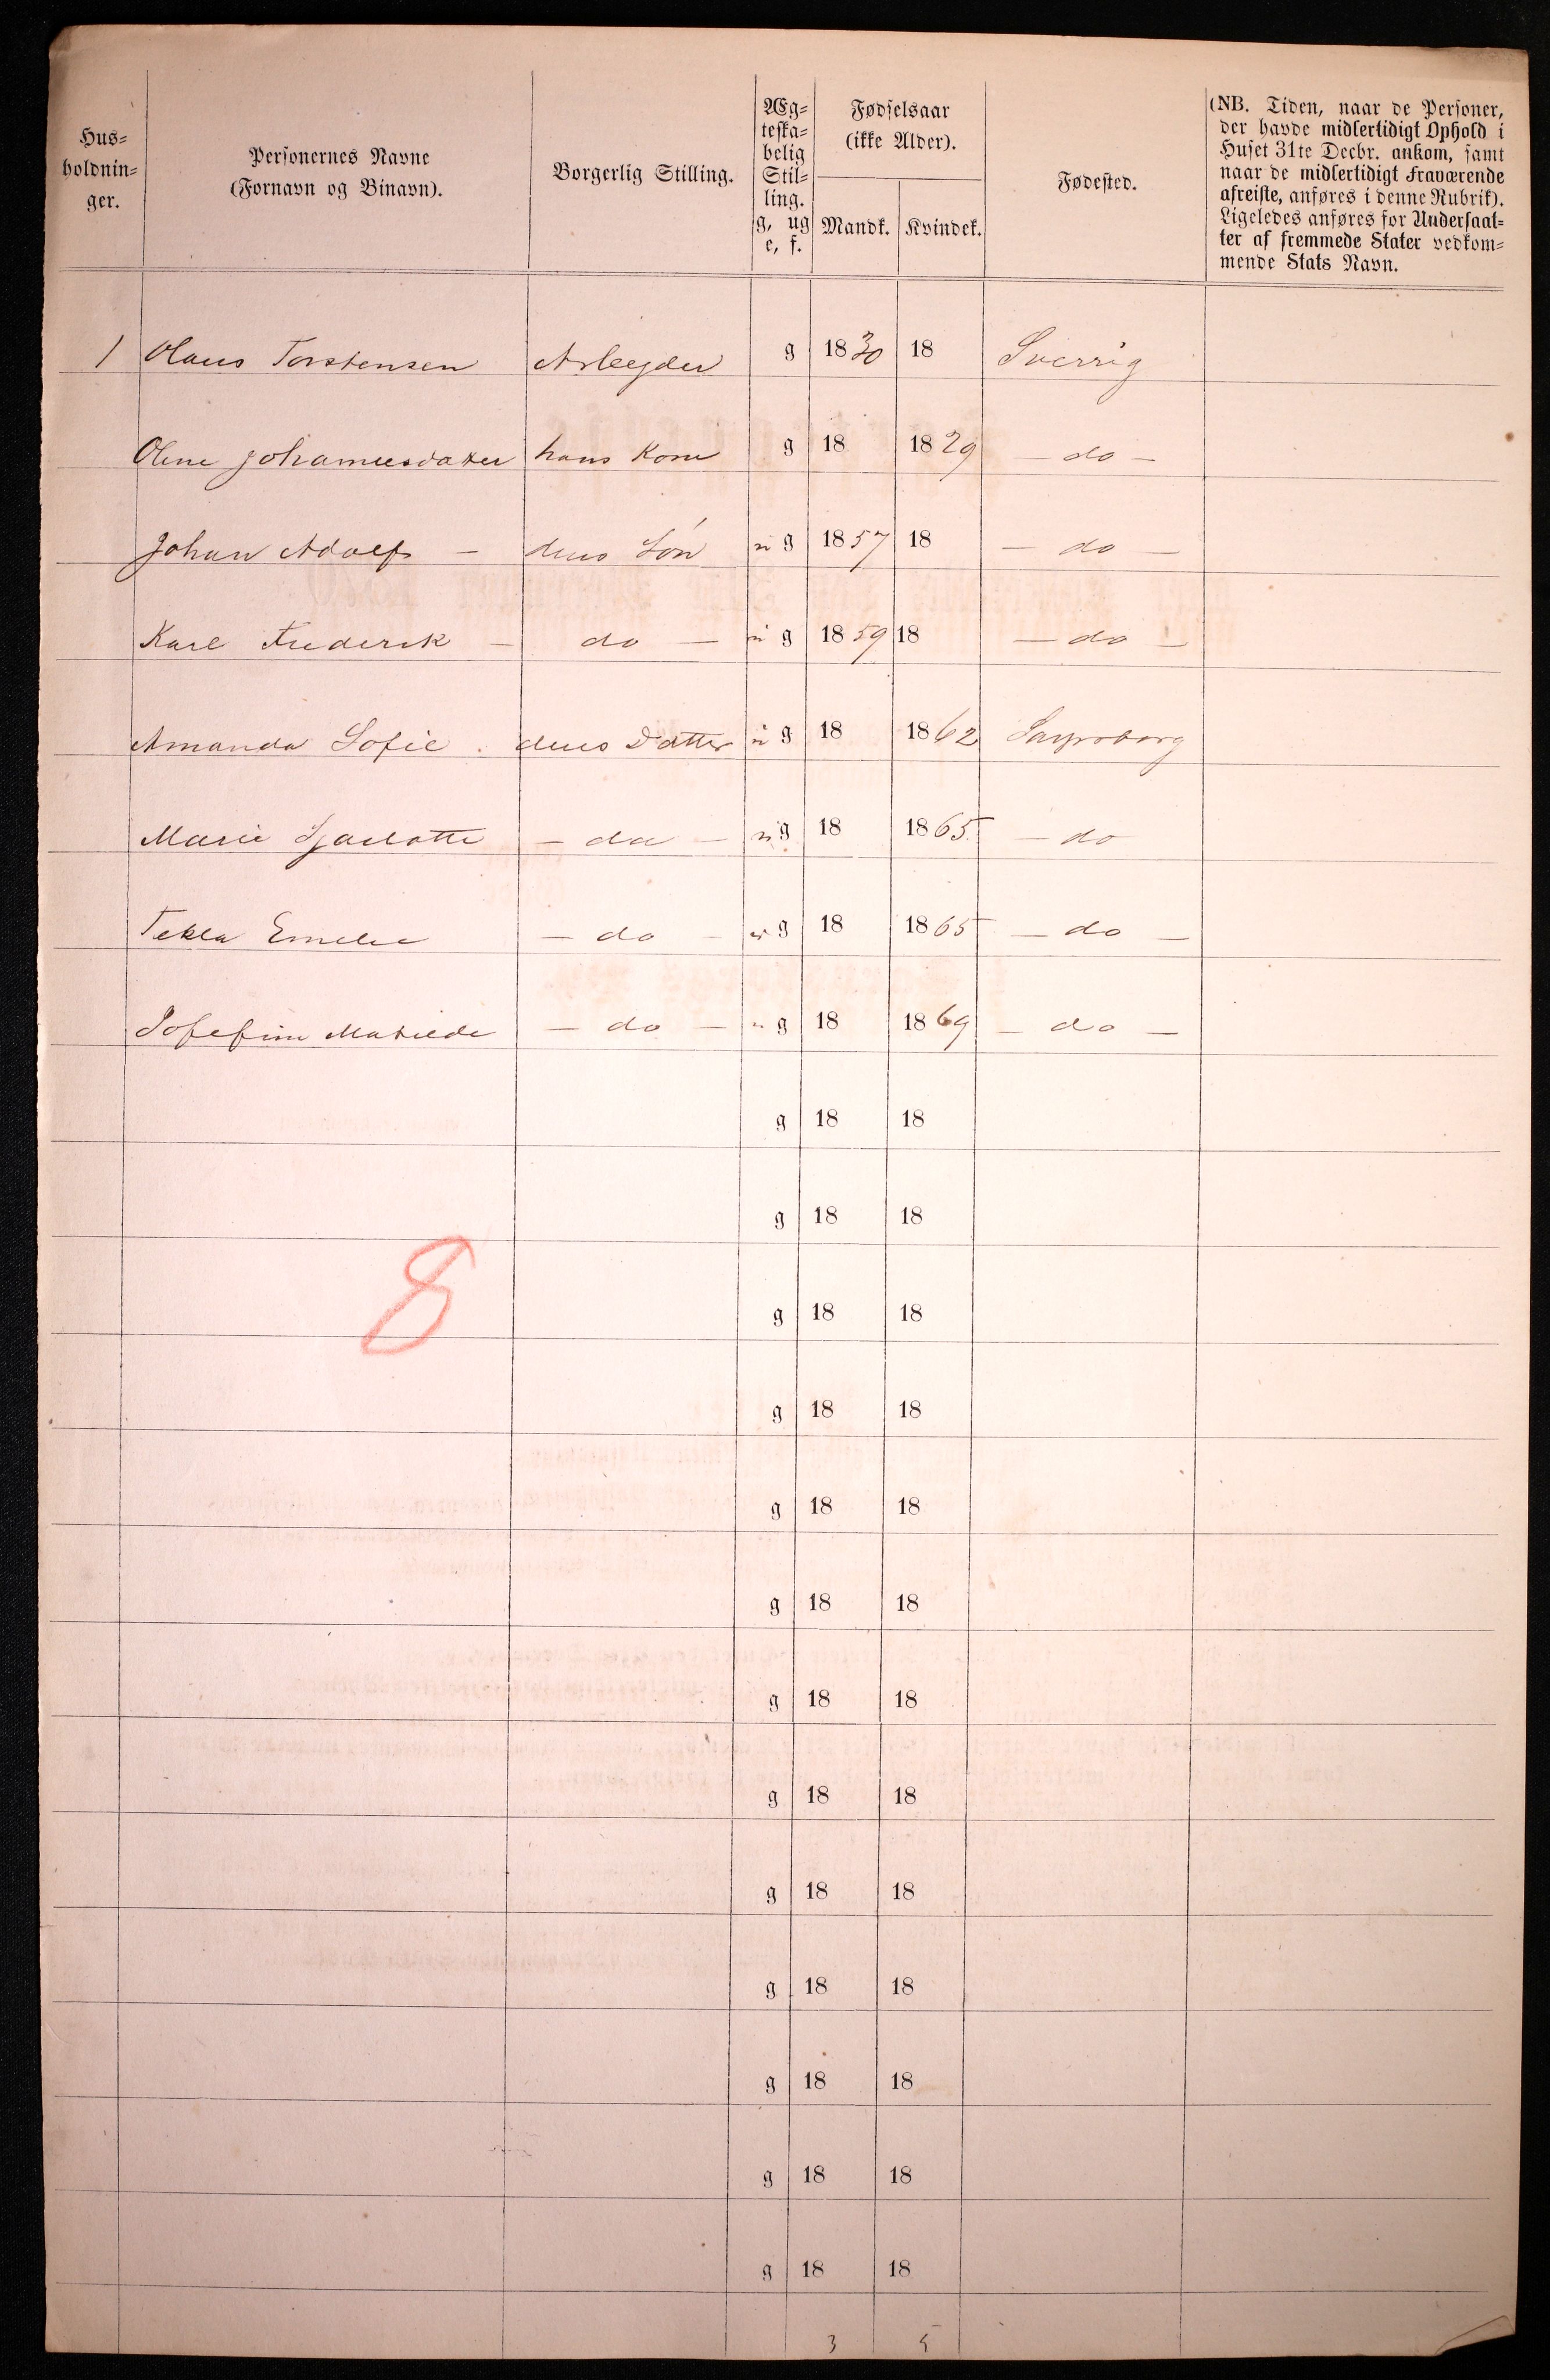 Hus-
holdnin-
ger.
Personernes Navne
(Fornavn og Binavn).
Borgerlig Stilling.
Æg-
teska-
belig
Stil-
ling.
g, ug
e, f.
Fødselsaar
(ikke Alder).
Mandk. Kvindek.
Fødested.
(NB. Tiden, naar de Personer,
der havde midlertidigt Ophold i
Huset 31te Decbr. ankom, samt
naar de midlertidigt Fraværende
afreiste, anføres i denne Rubrik).
Ligeledes anføres for Undersaat-
ter af fremmede Stater vedkom-
mende Stats Navn.
1 Olaus Torstensen Arbeyder g 1830 18 Sverrig
Oline Johannesdatter hans Kone g 18 1829 — do —
Johan Adolf — deres Sön u g 1857 18 — do —
Karl Frederik — do — u g 1859 18 — do —
Amanda Sofie deres Datter u g 18 1862 Sarpsborg
Marie Sjarlotte — do — u g 18 1865 — do
Tekla Emelie — do — u g 18 1865 — do —
Josefine Matilde — do — u g 18 1869 — do —
g 18 18
g 18 18
8
g 18 18
g 18 18
g 18 18
g 18 18
g 18 18
g 18 18
g 18 18
g 18 18
g 18 18
g 18 18
g 18 18
3 5